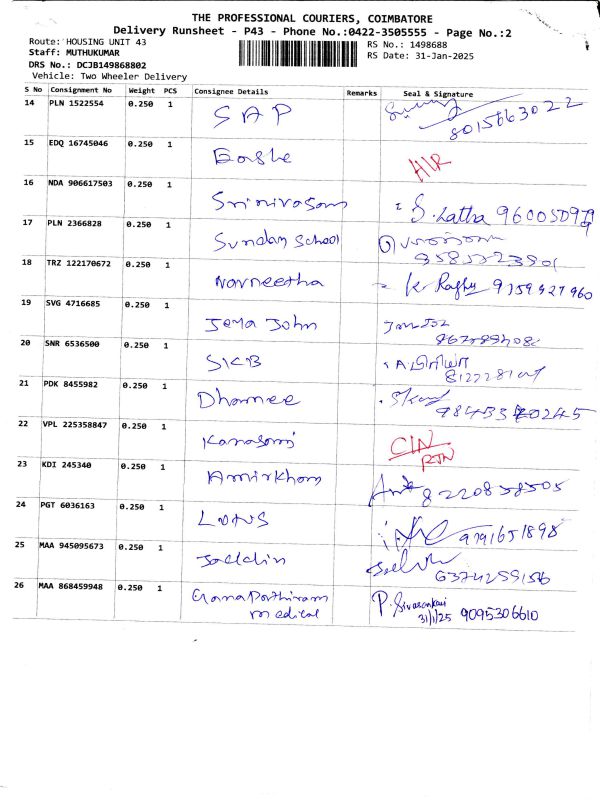 THE PROFESSIONAL COURIERS, COIMBATORE
Delivery Runsheet - P43 - Phone No.:0422-3505555 - Page No.:2
Route: HOUSING UNIT 43
RS No.: 1498688
Staff: MUTHUKUMAR
RS Date: 31-Jan-2025
DRS No.: DCJB149868802
Vehicle: Two Wheeler Delivery
S No Consignment No Weight PCS Consignee Details Remarks Seal & Signature
14 PLN 1522554 0.250 1 SAP
8015663022
15 EDQ 16745046 0.250 1
16 NDA 906617503 0.250 1 Srinivasan S. Latha
17 PLN 2366828 0.250 1 Sunday School
18 TRZ 122170672 0.250 1 Navneetha K Raghu 9159927960
19 SVG 4716685 0.250 1 Jeya John
20 SNR 6536500 0.250 1 SKB
21 PDK 8455982 0.250 1 Dharnee
22 VPL 225358847 0.250 1 CIN
RTN
23 KDI 245340 0.250 1 Amirkhan 8220858505
24 PGT 6036163 0.250 1 Lotus 9791651898
25 MAA 945095673 0.250 1
6374259156
26 MAA 868459948 0.250 1 P. Sivasankari
medical 31/1/25 9095306610